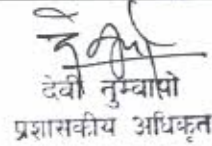 देवी तुम्वापो
प्रशासकीय अधिकृत